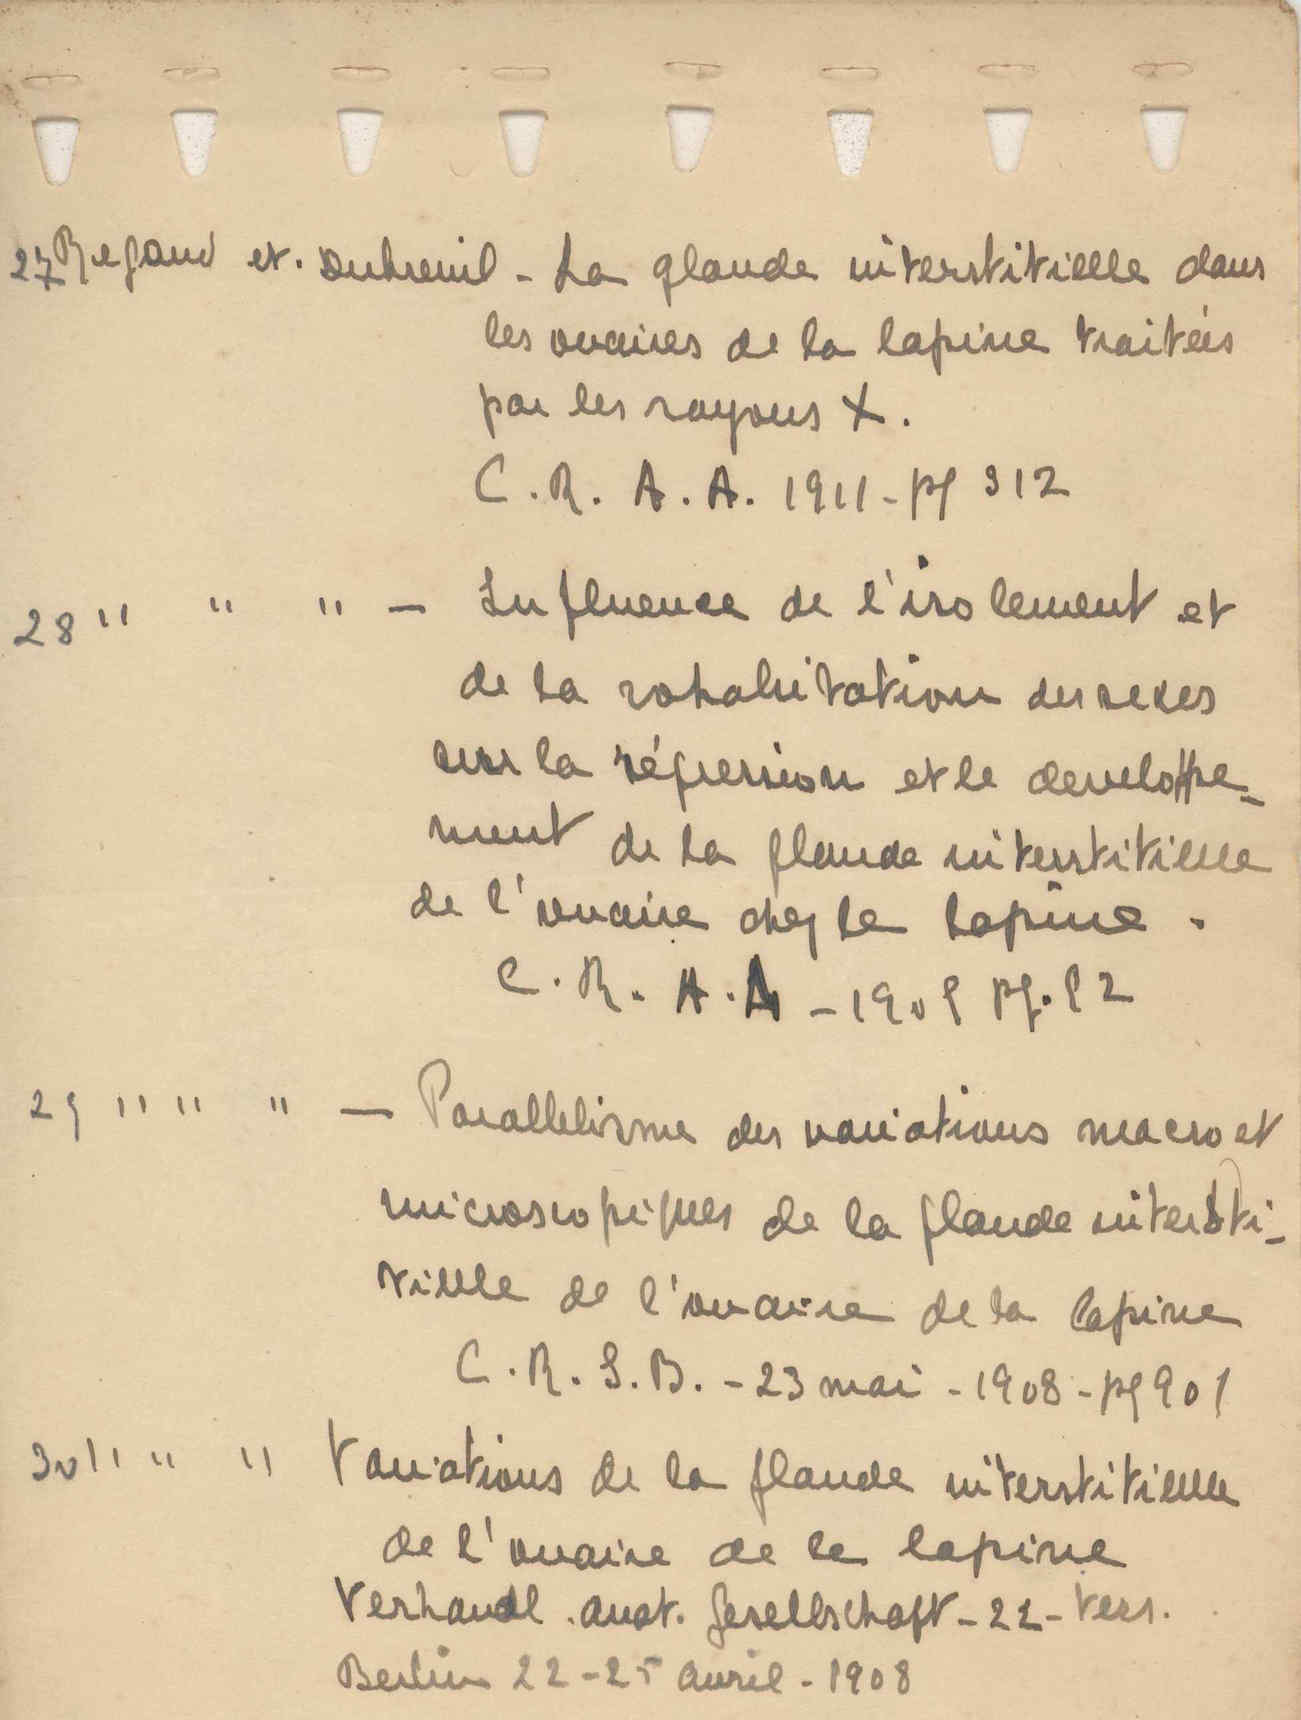 27 Regaud et. Dubreuil - La glande interstitielle dans
les ovaires de la lapine traités
par les rayons X.
C. R. A. A. 1911 - pg 312
28 " " " — Influence de l'isolement et
de la cohabitation des sexes
sur la régression et le developpe-
ment de la glande interstitielle
de l'ovaire chez la lapine.
C. R. A. A - 1909 pg. 92
29 " " " — Parallelisme des variations macro et
microscopiques de la glande intersti-
tielle de l'ovaire de la lapine
C. R. S. B. - 23 mai - 1908 - pg 901
30 " " " Variations de la glande interstitielle
de l'ovaire de la lapine
Verhandl. anat. Gesellschaft - 22 - Vers.
Berlin 22 - 25 avril - 1908